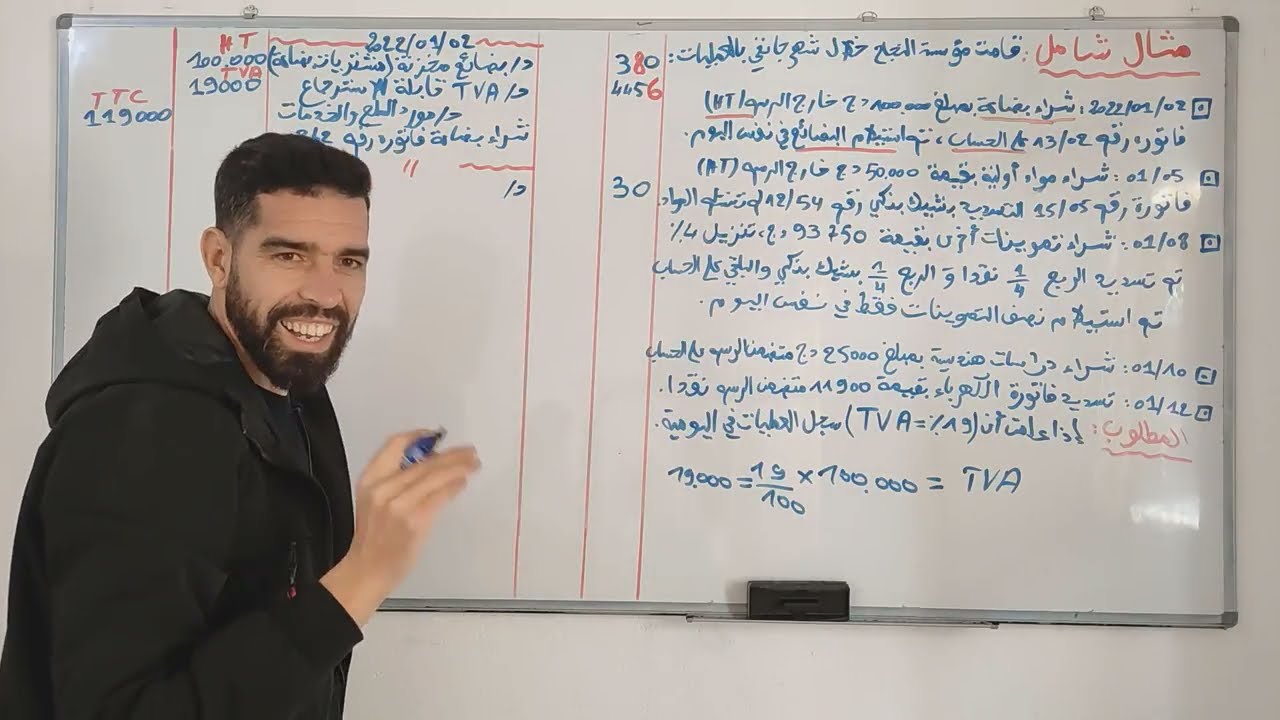 مثال شامل: قامت مؤسسة النجاح خلال شهر جانفي بالعمليات:
2022/01/02: شراء بضاعة بمبلغ 100.000 دج خارج الرسم (HT)
فاتورة رقم 13/02 على الحساب، تم استيلام البضائع في نفس اليوم.
01/05: شراء مواد أولية بقيمة 50.000 دج خارج الرسم (HT)
فاتورة رقم 15/05 التسديد بشيك بنكي رقم 12/54 المواد.
01/08: شراء تموينات أخرى بقيمة 93750 دج، تنزيل 4%
تم تسديد الربع 1/4 نقدا و الربع 1/4 بشيك بنكي والباقي على الحساب
تم استيلام نصف التموينات فقط في نفس اليوم.
01/10: شراء دراسات هندسية بمبلغ 25000 دج متضمن الرسم على الحساب
01/12: تسديد فاتورة الكهرباء بقيمة 11900 متضمن الرسم نقدا.
المطلوب: إذا علمت أن (TVA=%19) سجل العمليات في اليومية.
19.000 = 19/100 × 100.000 = TVA
2022/01/02
HT
380
د/ بضائع مخزنة (مشتريات بضاعة)
100.000
TVA
4456
د/ TVA قابلة للاسترجاع
19000
TTC
د/ مورد السلع والخدمات
119000
شراء بضاعة فاتورة رقم
"
30
د/